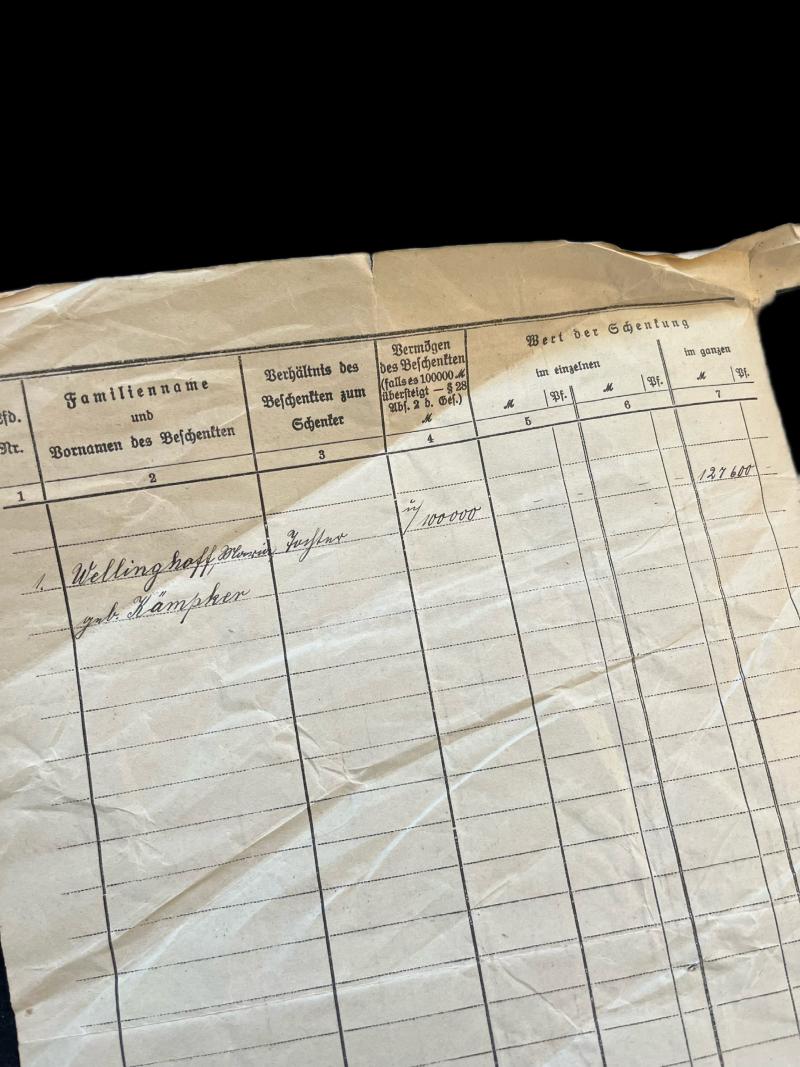 Lfd.
Nr.
Familienname
und
Vornamen des Beschenkten
Verhältnis des
Beschenkten zum
Schenker
Vermögen
des Beschenkten
(falls es 100000 M
übersteigt — § 28
Abs. 2 d. Ges.)
M
Wert der Schenkung
im einzelnen
im ganzen
M Pf. M Pf. M Pf.
1 2 3 4 5 6 7
127600
1. Wellinghoff, Maria Tochter ü/100000
geb. Kämpker